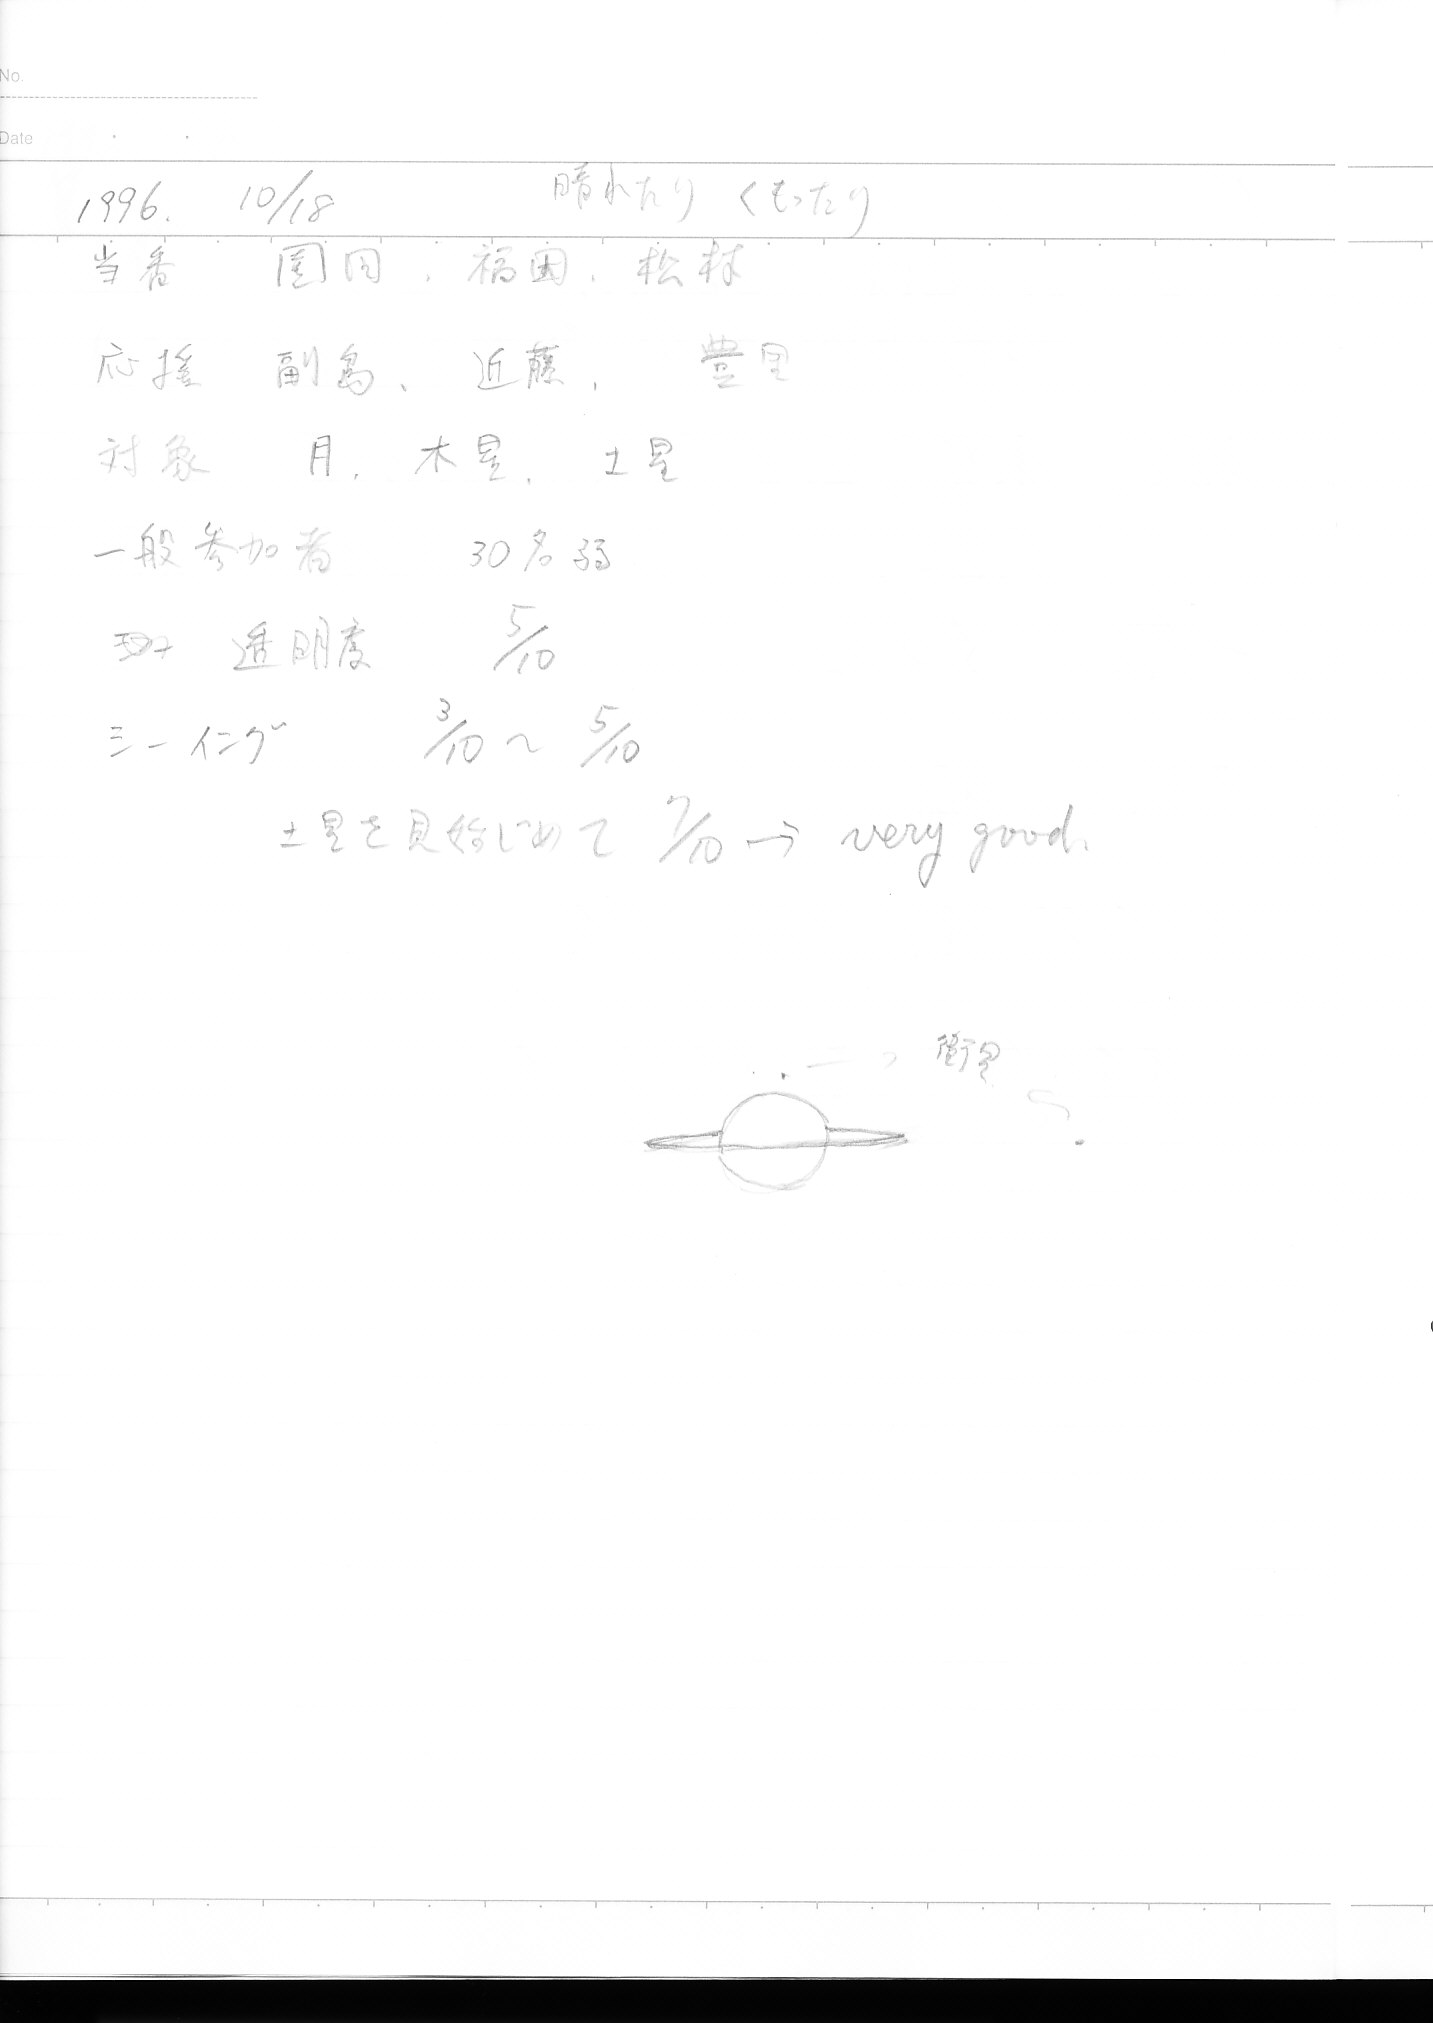 No.
Date
1996. 10/18 晴れたり くもったり
当番 園田、福田、松村
応援 副島、近藤、豊里
対象 月、木星、土星
一般参加者 30名弱
透明度 5/10
シーイング 3/10 ~ 5/10
土星を見始じめて 7/10 → very good.
衛星